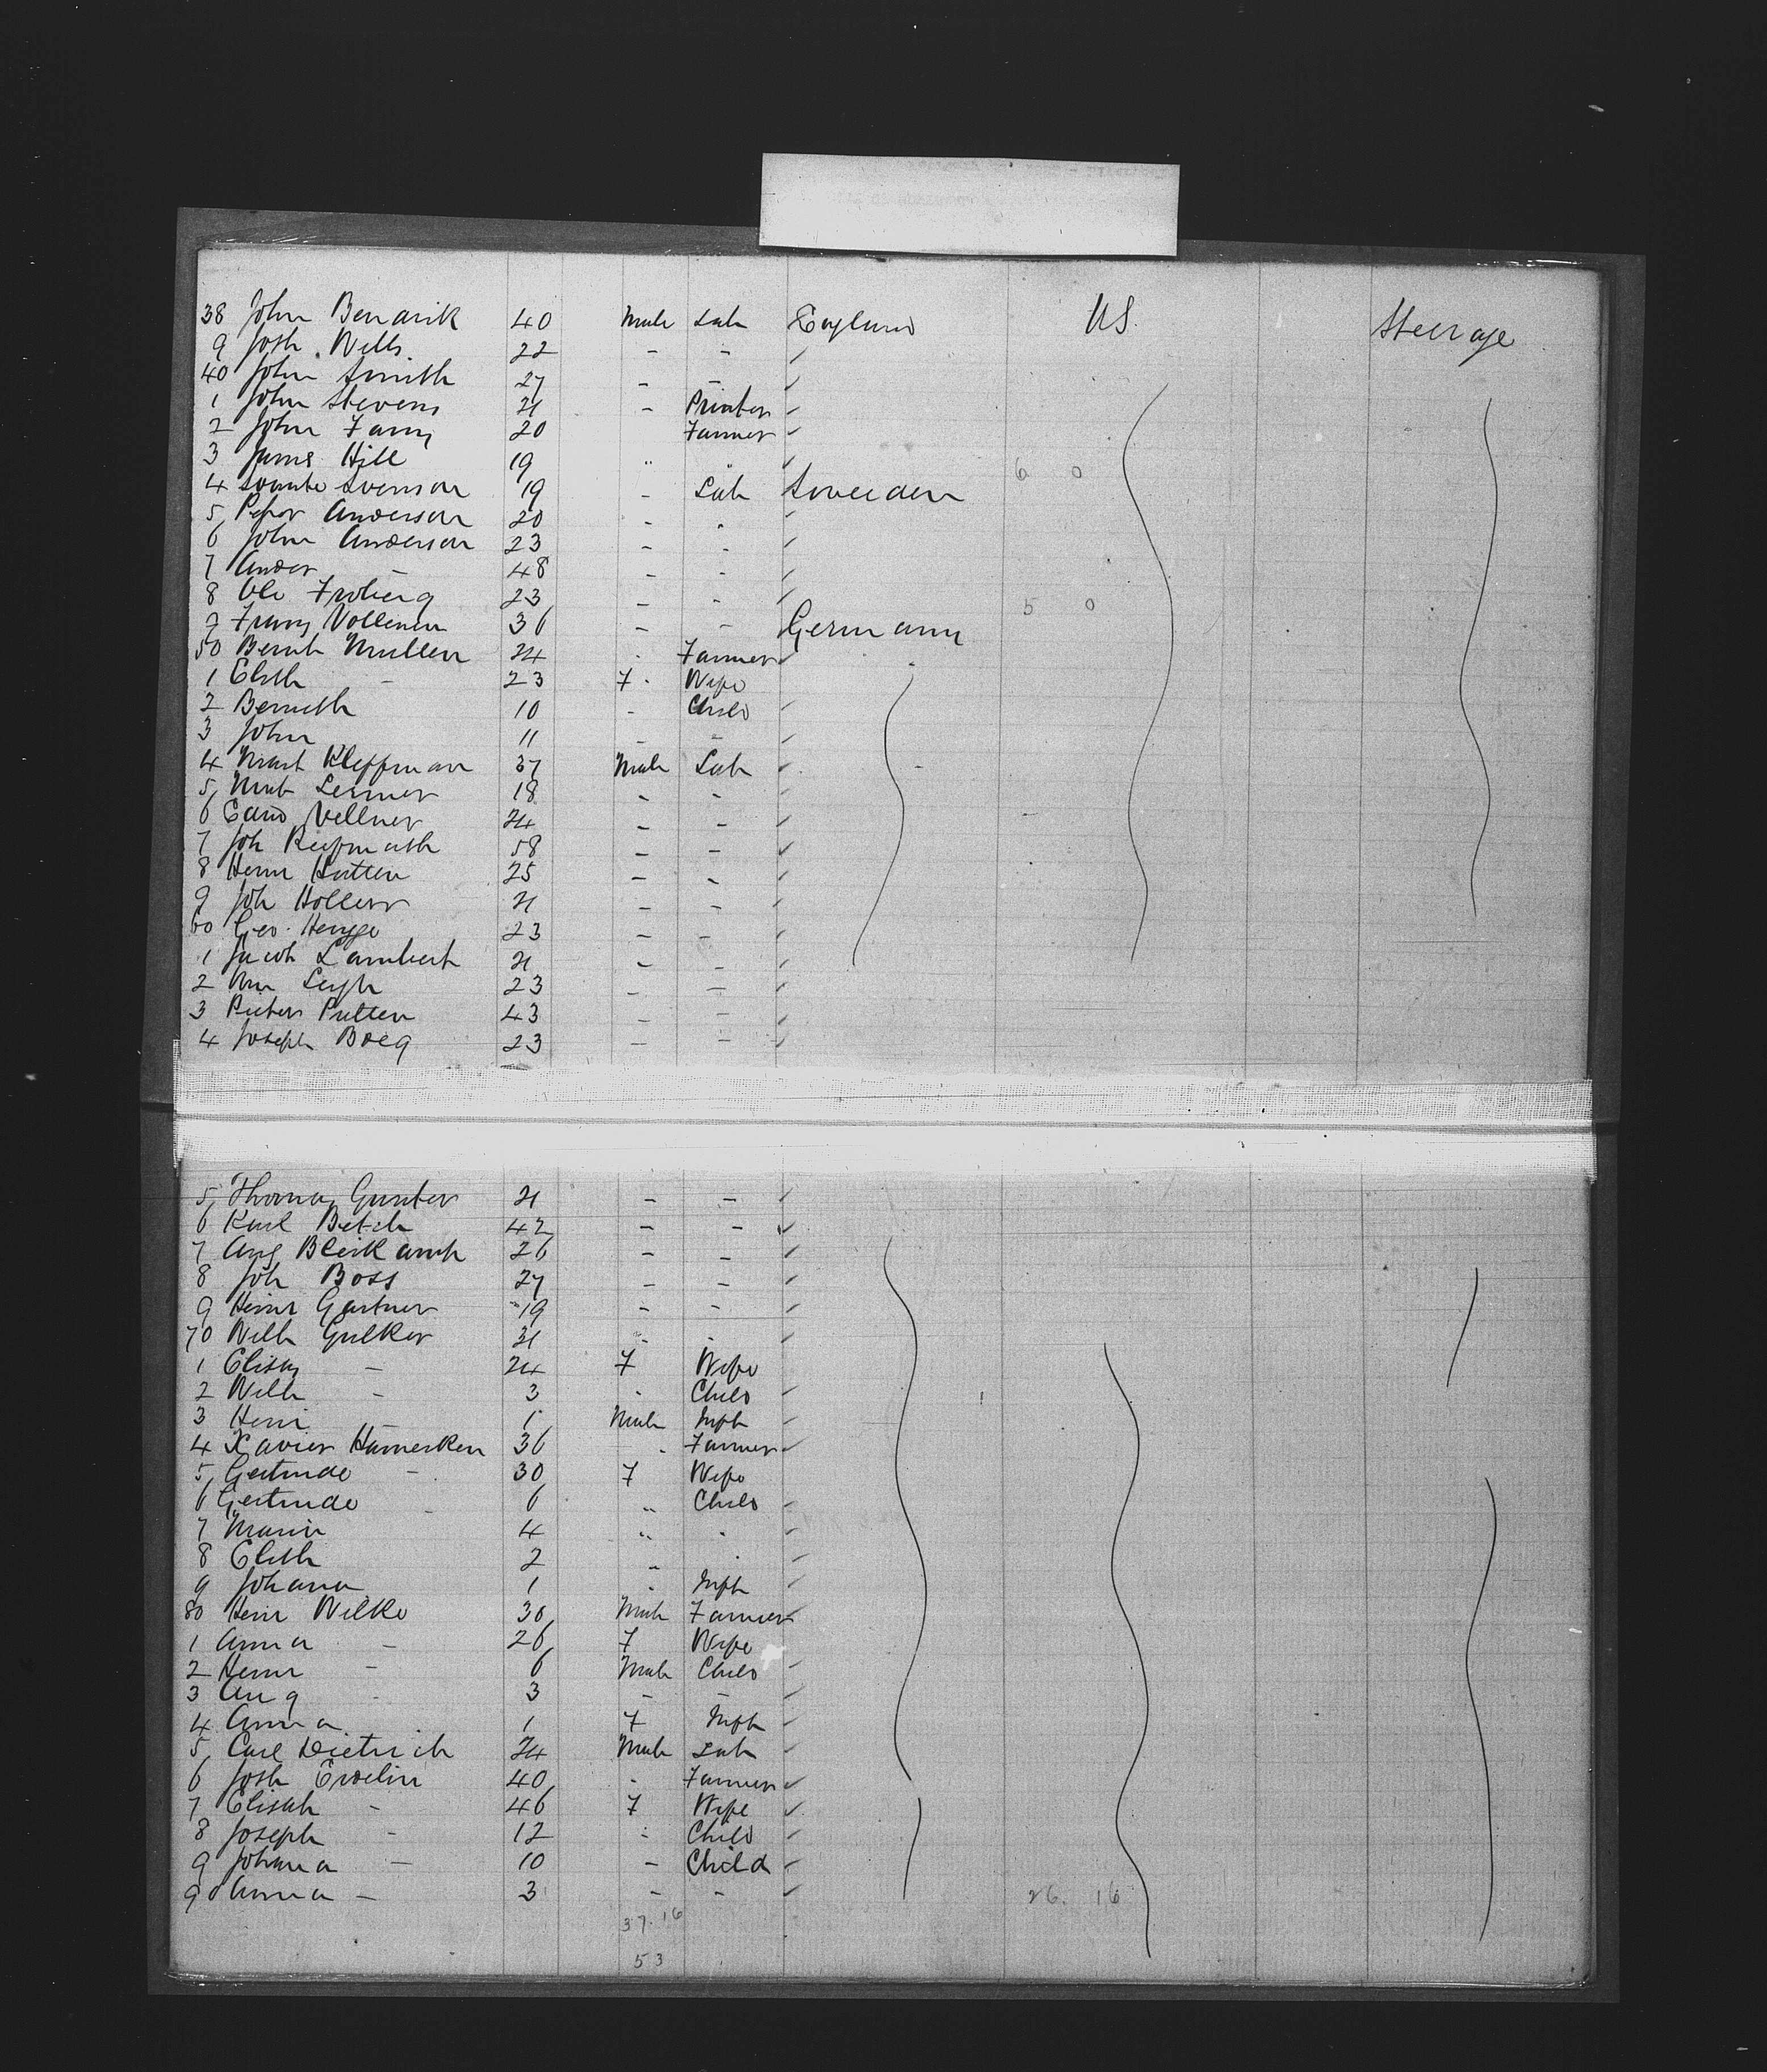 38 John Benarik 40 Male Lab England US. Steerage
9 Josh. Wells 22 - -
40 John Smith 27 - -
1 John Stevens 21 - Printer
2 John 20 Farmer
3 James Hill 19 " "
4 Svenson 19 - Lab Sweeden 6 0
5 Peter Anderson 20 - -
6 John Anderson 23 - -
7 Ander - 48 - -
8 Ole Froberg 23 - - 5 0
9 Franz 36 - - Germany
50 Mullen 24 - Farmer
1 Elisth - 23 F. Wife
2 10 - Child
3 John 11 - -
4 Kleffman 37 Male Lab
5 18 - -
6 Vellner 24 - -
7 Joh 58 - -
8 Henr Hutten 25 - -
9 Joh 21 - -
60 Geo. 23 - -
1 Jacob Lambert 21 - -
2 23 - -
3 Pieter Pullen 43 - -
4 Joseph Boeg 23 - -
5 Thomas Gunter 21 - -
6 Karl Betch 42 - -
7 Aug Bleikamp 26 - -
8 Joh Boss 27 - -
9 Heinr Gartner 19 - -
70 Wilh Gulker 31 - -
1 - 24 F Wife
2 Wilh - 3 - Child
3 Henr - 1 Male Inft
4 Xavier Hamerken 36 - Farmer
5 Gertrude - 30 F Wife
6 Gertrude - 6 " Child
7 Maria 4 " -
8 Elisth 2 " -
9 Johana 1 - Inft
80 Heinr Wilke 36 Male Farmer
1 Anna - 26 F Wife
2 Heinr - 6 Male Child
3 Aug - 3 - -
4 Anna 1 F Inft
5 Carl Dietrich 24 Male Lab
6 Josh 40 - Farmer
7 Elisab - 46 F Wife
8 Joseph - 12 - Child
9 Johana - 10 - Child
90 Anna - 3 - - 26. 16
37. 16
53